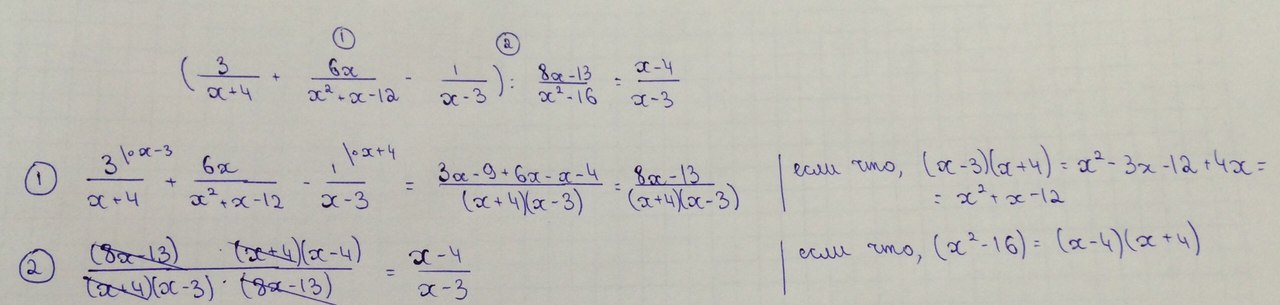 ① ②
(3/(x+4) + 6x/(x²+x-12) - 1/(x-3)) : (8x-13)/(x²-16) = (x-4)/(x-3)
① 3\∘x-3/(x+4) + 6x/(x²+x-12) - 1\∘x+4/(x-3) = (3x-9+6x-x-4)/((x+4)(x-3)) = (8x-13)/((x+4)(x-3)) | если что, (x-3)(x+4) = x²-3x-12+4x =
= x²+x-12
② (8x-13) · (x+4)(x-4)/((x+4)(x-3) · (8x-13)) = (x-4)/(x-3) | если что, (x²-16) = (x-4)(x+4)